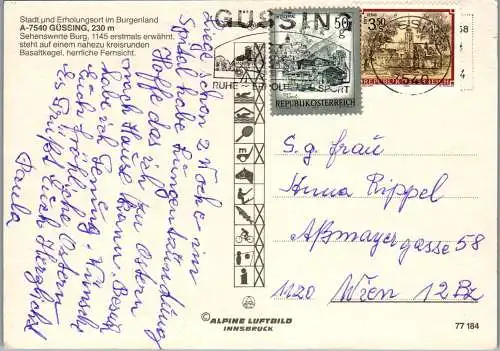 Stadt und Erholungsort im Burgenland
A-7540 GÜSSING, 230 m
Sehenswerte Burg, 1145 erstmals erwähnt,
steht auf einem nahezu kreisrunden
Basaltkegel, herrliche Fernsicht.
GÜSSING
RUHE – ERHOLUNG – SPORT
50g
REPUBLIK ÖSTERREICH
3.50
Liege schon 2 Woche im
Spital habe Lungenentzündung
Hoffe das ich zu Ostern
nach Hause kann. Besuch
habe ich Genug. Wünsche
Euch fröhliche Ostern
Es Grüßt Euch Herzlichst
Paula
S.g. Frau
Anna Rippel
Aßmayergasse 58
1120 Wien 12 Bz
© ALPINE LUFTBILD
INNSBRUCK
77 184